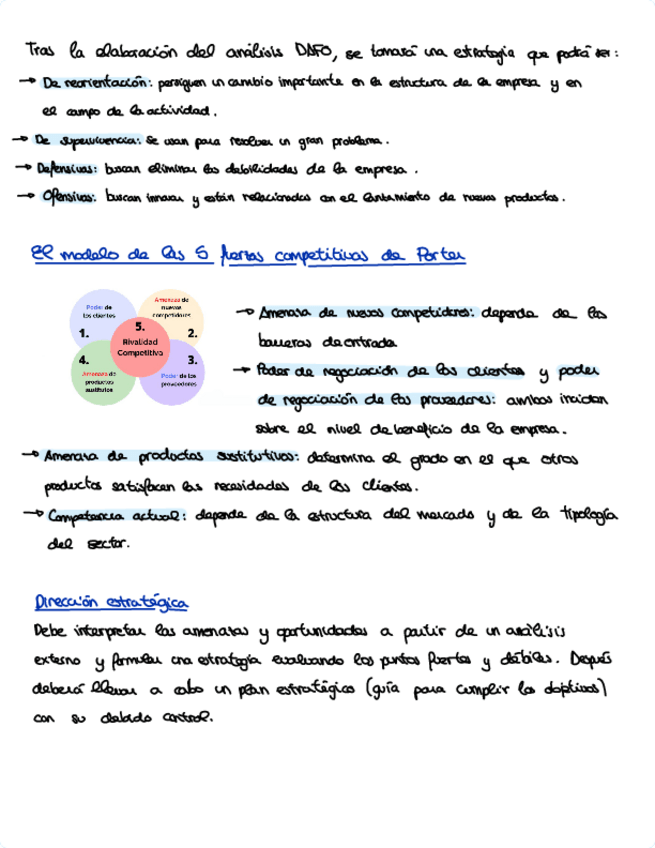 Tras la elaboración del análisis DAFO, se tomará una estrategia que podrá ser:
→ De reorientación: persiguen un cambio importante en la estructura de la empresa y en
el campo de la actividad.
→ De supervivencia: se usan para resolver un gran problema.
→ Defensivas: buscan eliminar las debilidades de la empresa.
→ Ofensivas: buscan innovar y están relacionadas con el lanzamiento de nuevos productos.
El modelo de las 5 fuerzas competitivas de Porter
Poder de
los clientes
1.
Amenaza de
nuevos
competidores
2.
5.
Rivalidad
Competitiva
4.
Amenaza de
productos
sustitutos
3.
Poder de los
proveedores
→ Amenaza de nuevos competidores: depende de las
barreras de entrada
→ Poder de negociación de los clientes y poder
de negociación de los proveedores: ambos inciden
sobre el nivel de beneficio de la empresa.
→ Amenaza de productos sustitutivos: determina el grado en el que otros
productos satisfacen las necesidades de los clientes.
→ Competencia actual: depende de la estructura del mercado y de la tipología
del sector.
Dirección estratégica
Debe interpretar las amenazas y oportunidades a partir de un análisis
externo y formular una estrategia evaluando los puntos fuertes y débiles. Después
deberá llevar a cabo un plan estratégico (guía para cumplir los objetivos)
con su debido control.